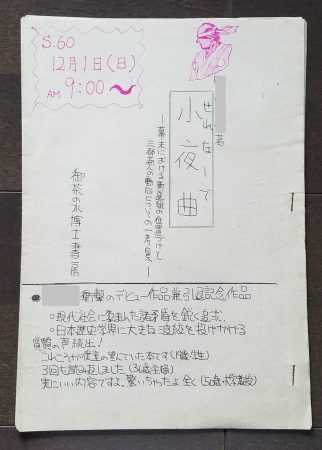 S.60
12月1日(日)
AM 9:00〜
著
せれなーで
小夜曲
―幕末における新選組の位置づけと
三都商人の動向についての一考察―
御茶の水博士書房
衝撃のデビュー作品兼引退記念作品
○現代社会に象れた諸矛盾を鋭く追求
○日本歴史学界に大きな波紋を投げかける
賞賛の声続出!
これこそ僕の望んでいた本です(19歳・学生)
3回も読み返しました(36歳主婦)
実にいい内容ですよ。驚いちゃったよ全く(50歳・大学教授)